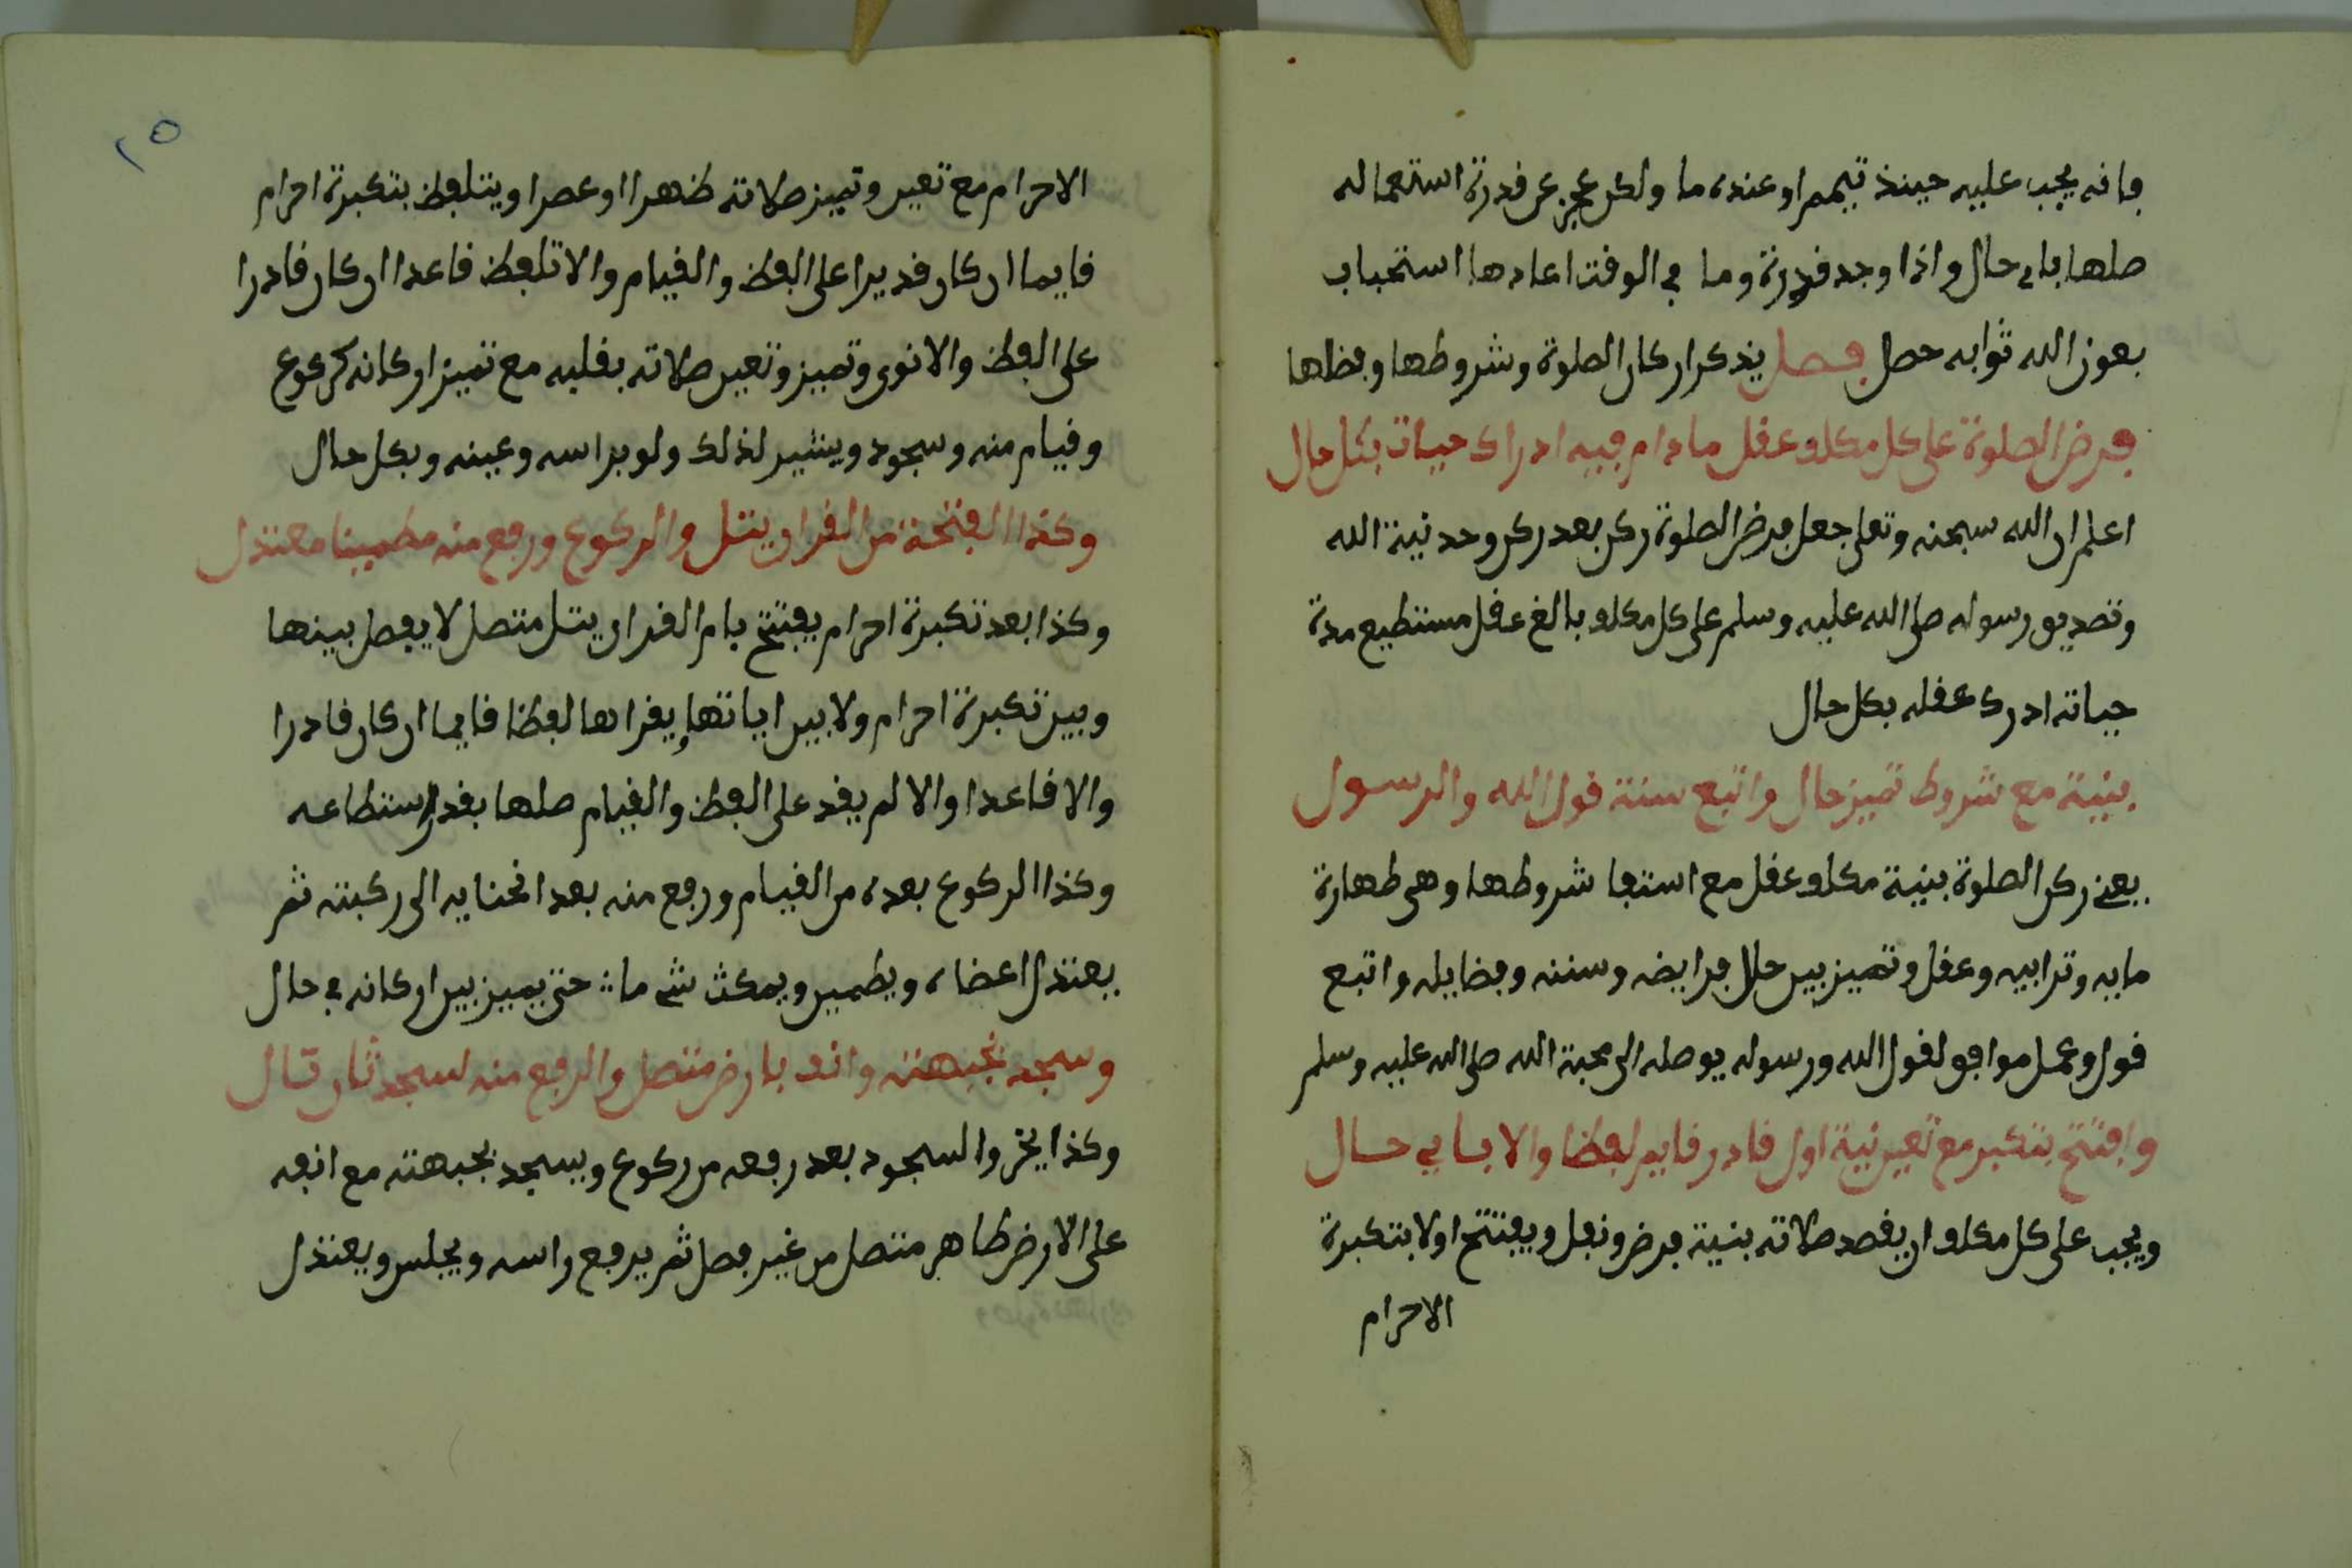 فانه يجب عليه حينذ تيمم او عنده ما ولكن عجز عن قدرة استعماله
صلها باى حال واذا وجد قدرة وما في الوقت اعادها استحباب
بعون الله ثوابه حصل فصل يذكر اركان الصلوة وشروطها وفظلها
فرض الصلوة على كل مكلف عقل ما دام فيه ادراك حيات بكل حال
اعلم ان الله سبحنه وتعلى جعل فرض الصلوة ركن بعد ركن وحدنية الله
وتصديق رسوله صلى الله عليه وسلم على كل مكلف بالغ عقل مستطيع مدة
حياته ادرك عقله بكل حال
بنية مع شروط تميز حال واتبع سنة قول الله والرسول
يعنى ركن الصلوة بنية مكلف عقل مع استفا شروطها وهى طهارة
مايه وترابيه وعقل وتميز بين حلل فرايضه وسننه وفضايله واتبع
قول وعمل موافق لقول الله ورسوله يوصله الى محبة الله صلى الله عليه وسلم
وافتتح بتكبير مع تعين نية اول قادر قايم لفظا والا باي حال
ويجب على كل مكلف ان يقصد صلاته بنية فرض ونفل ويفتتح اولا بتكبرة
الاحرام
٢٥
الاحرام مع تعين وتميز صلاته ظهرا او عصرا ويتلفظ بتكبرة احرام
قايما ان كان قديرا على الفظ والقيام والا تلفظ قاعدا ان كان قادرا
على الفظ والا نوى وتميز وتعين صلاته بقلبه مع تميز اركانه كركوع
وقيام منه وسجود ويشير لذلك ولو براسه وعينه وبكل حال
وكذا الفتحة من القران يتل والركوع ورفع منه مطمينا معتذل
وكذا بعد تكبرة احرام يفتتح بام القران يتل متصل لا يفصل بينها
وبين تكبرة احرام ولا بين اياتها يقراها لفظا قايما ان كان قادرا
والا قاعدا والا لم يقد على الفظ والقيام صلها بقدر استطاعه
وكذا الركوع بعده من القيام ورفع منه بعد انحنايه الى ركبته ثم
يعتذل اعضاه ويطمين ويمكث شي ما حتى يميز بين اركانه في حال
وسجد بجبهته وانف بارض متصل والرفع منه لسجد ثان تال
وكذا يخر والسجود بعد رفعه من ركوع ويسجد بجبهته مع انفه
على الارض ظاهر متصل من غير فصل ثم يرفع راسه ويجلس ويعتذل